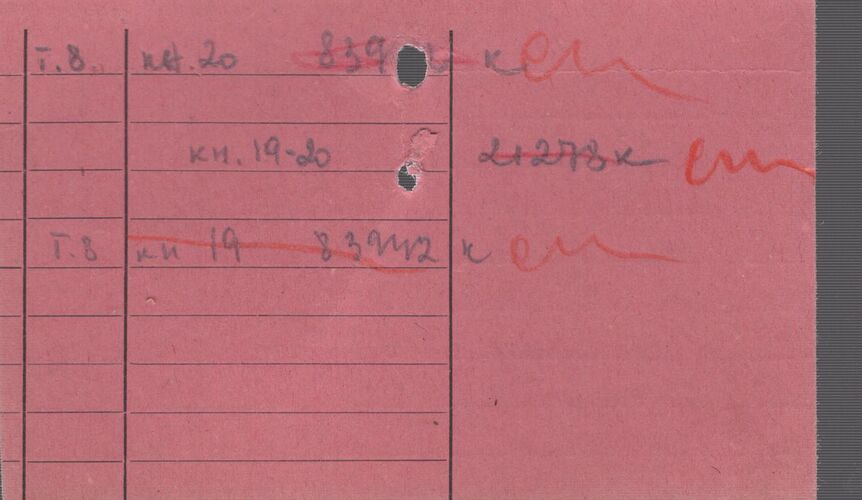 Т.8 кн. 20 839 к сп
кн. 19-20 21278к сп
Т.8 кн 19 83942 к сп